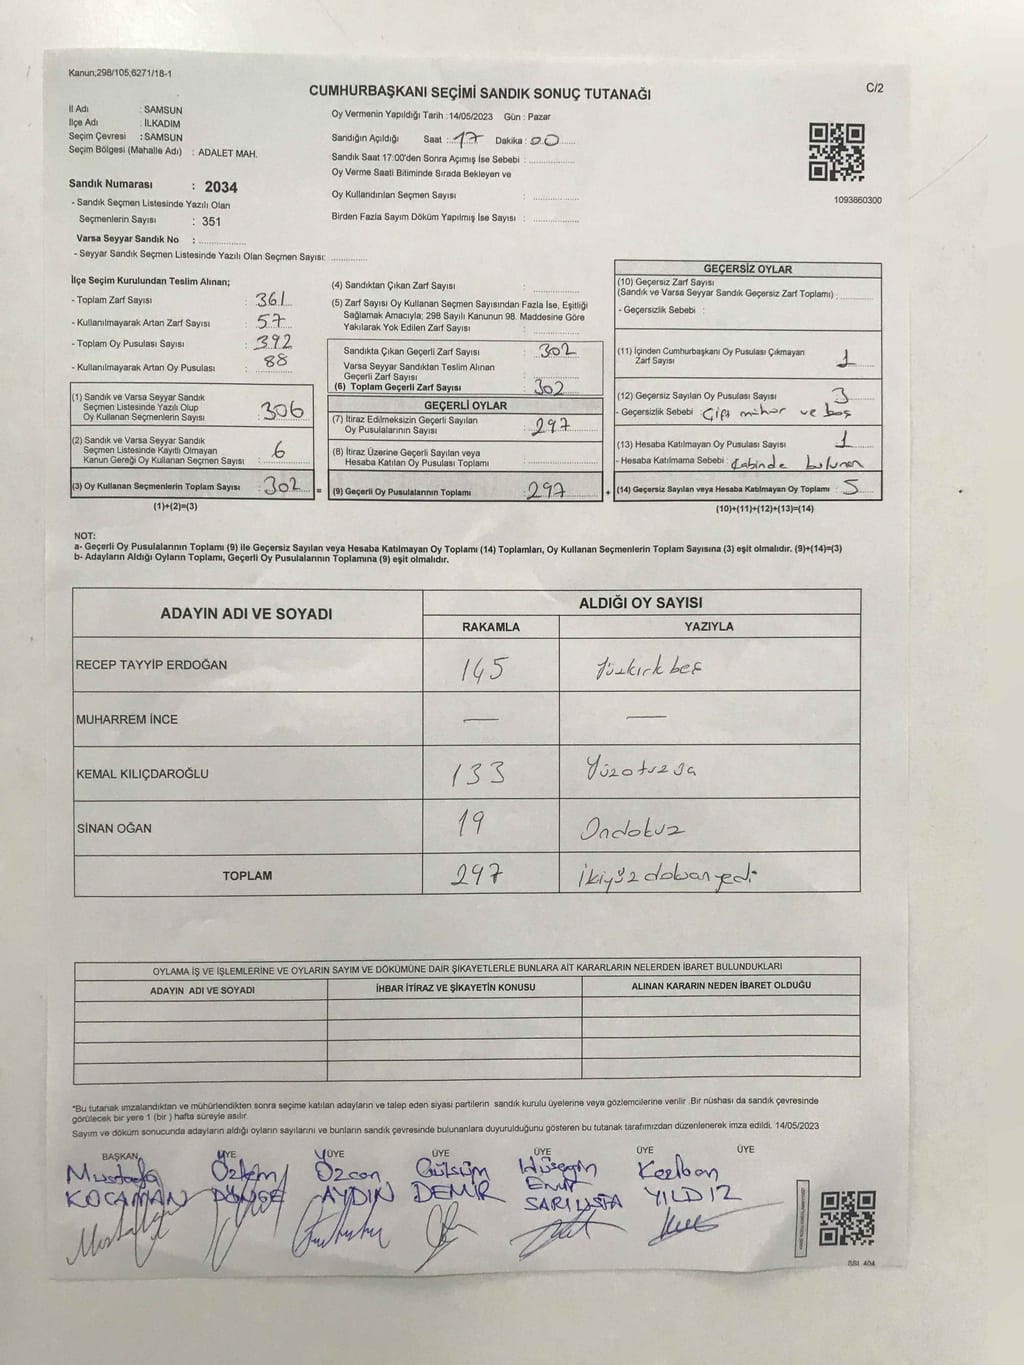 Kanun;298/105,6271/18-1
C/2
CUMHURBAŞKANI SEÇİMİ SANDIK SONUÇ TUTANAĞI
İl Adı : SAMSUN
İlçe Adı : İLKADIM
Seçim Çevresi : SAMSUN
Seçim Bölgesi (Mahalle Adı) : ADALET MAH.
Oy Vermenin Yapıldığı Tarih : 14/05/2023 Gün : Pazar
Sandığın Açıldığı Saat : 17 Dakika : 00
Sandık Saat 17:00'den Sonra Açımış İse Sebebi :
Oy Verme Saati Bitiminde Sırada Bekleyen ve
Oy Kullandırılan Seçmen Sayısı :
Birden Fazla Sayım Döküm Yapılmış İse Sayısı :
1093860300
Sandık Numarası : 2034
- Sandık Seçmen Listesinde Yazılı Olan
Seçmenlerin Sayısı : 351
Varsa Seyyar Sandık No :
- Seyyar Sandık Seçmen Listesinde Yazılı Olan Seçmen Sayısı:
İlçe Seçim Kurulundan Teslim Alınan;
- Toplam Zarf Sayısı : 361
- Kullanılmayarak Artan Zarf Sayısı : 57
- Toplam Oy Pusulası Sayısı : 392
- Kullanılmayarak Artan Oy Pusulası : 88
(1) Sandık ve Varsa Seyyar Sandık
Seçmen Listesinde Yazılı Olup
Oy Kullanan Seçmenlerin Sayısı : 306
(2) Sandık ve Varsa Seyyar Sandık
Seçmen Listesinde Kayıtlı Olmayan
Kanun Gereği Oy Kullanan Seçmen Sayısı : 6
(3) Oy Kullanan Seçmenlerin Toplam Sayısı : 302 =
(1)+(2)=(3)
(4) Sandıktan Çıkan Zarf Sayısı :
(5) Zarf Sayısı Oy Kullanan Seçmen Sayısından Fazla İse, Eşitliği
Sağlamak Amacıyla; 298 Sayılı Kanunun 98. Maddesine Göre
Yakılarak Yok Edilen Zarf Sayısı :
Sandıkta Çıkan Geçerli Zarf Sayısı : 302
Varsa Seyyar Sandıktan Teslim Alınan
Geçerli Zarf Sayısı :
(6) Toplam Geçerli Zarf Sayısı : 302
GEÇERLİ OYLAR
(7) İtiraz Edilmeksizin Geçerli Sayılan
Oy Pusulalarının Sayısı : 297
(8) İtiraz Üzerine Geçerli Sayılan veya
Hesaba Katılan Oy Pusulası Toplamı :
(9) Geçerli Oy Pusulalarının Toplamı : 297 +
GEÇERSİZ OYLAR
(10) Geçersiz Zarf Sayısı
(Sandık ve Varsa Seyyar Sandık Geçersiz Zarf Toplamı) :
- Geçersizlik Sebebi :
(11) İçinden Cumhurbaşkanı Oy Pusulası Çıkmayan
Zarf Sayısı : 1
(12) Geçersiz Sayılan Oy Pusulası Sayısı : 3
- Geçersizlik Sebebi : Çift mühür ve boş
(13) Hesaba Katılmayan Oy Pusulası Sayısı : 1
- Hesaba Katılmama Sebebi : Kabinde bulunan
(14) Geçersiz Sayılan veya Hesaba Katılmayan Oy Toplamı : 5
(10)+(11)+(12)+(13)=(14)
NOT:
a- Geçerli Oy Pusulalarının Toplamı (9) ile Geçersiz Sayılan veya Hesaba Katılmayan Oy Toplamı (14) Toplamları, Oy Kullanan Seçmenlerin Toplam Sayısına (3) eşit olmalıdır. (9)+(14)=(3)
b- Adayların Aldığı Oyların Toplamı, Geçerli Oy Pusulalarının Toplamına (9) eşit olmalıdır.
ADAYIN ADI VE SOYADI
ALDIĞI OY SAYISI
RAKAMLA YAZIYLA
RECEP TAYYİP ERDOĞAN 145 Yüzkırk beş
MUHARREM İNCE — —
KEMAL KILIÇDAROĞLU 133 Yüzotuzüç
SİNAN OĞAN 19 Ondokuz
TOPLAM 297 İkiyüzdoksanyedi
OYLAMA İŞ VE İŞLEMLERİNE VE OYLARIN SAYIM VE DÖKÜMÜNE DAİR ŞİKAYETLERLE BUNLARA AİT KARARLARIN NELERDEN İBARET BULUNDUKLARI
ADAYIN ADI VE SOYADI İHBAR İTİRAZ VE ŞİKAYETİN KONUSU ALINAN KARARIN NEDEN İBARET OLDUĞU
*Bu tutanak imzalandıktan ve mühürlendikten sonra seçime katılan adayların ve talep eden siyasi partilerin sandık kurulu üyelerine veya gözlemcilerine verilir .Bir nüshası da sandık çevresinde
görülecek bir yere 1 (bir ) hafta süreyle asılır.
Sayım ve döküm sonucunda adayların aldığı oyların sayılarını ve bunların sandık çevresinde bulunanlara duyurulduğunu gösteren bu tutanak tarafımızdan düzenlenerek imza edildi. 14/05/2023
BAŞKAN ÜYE ÜYE ÜYE ÜYE ÜYE ÜYE
Mustafa Özlem Özcan Gülsüm Hüseyin Kezban
KOCAMAN DÖNGE AYDIN DEMİR Emir SARIUSTA YILDIZ
SSI_404